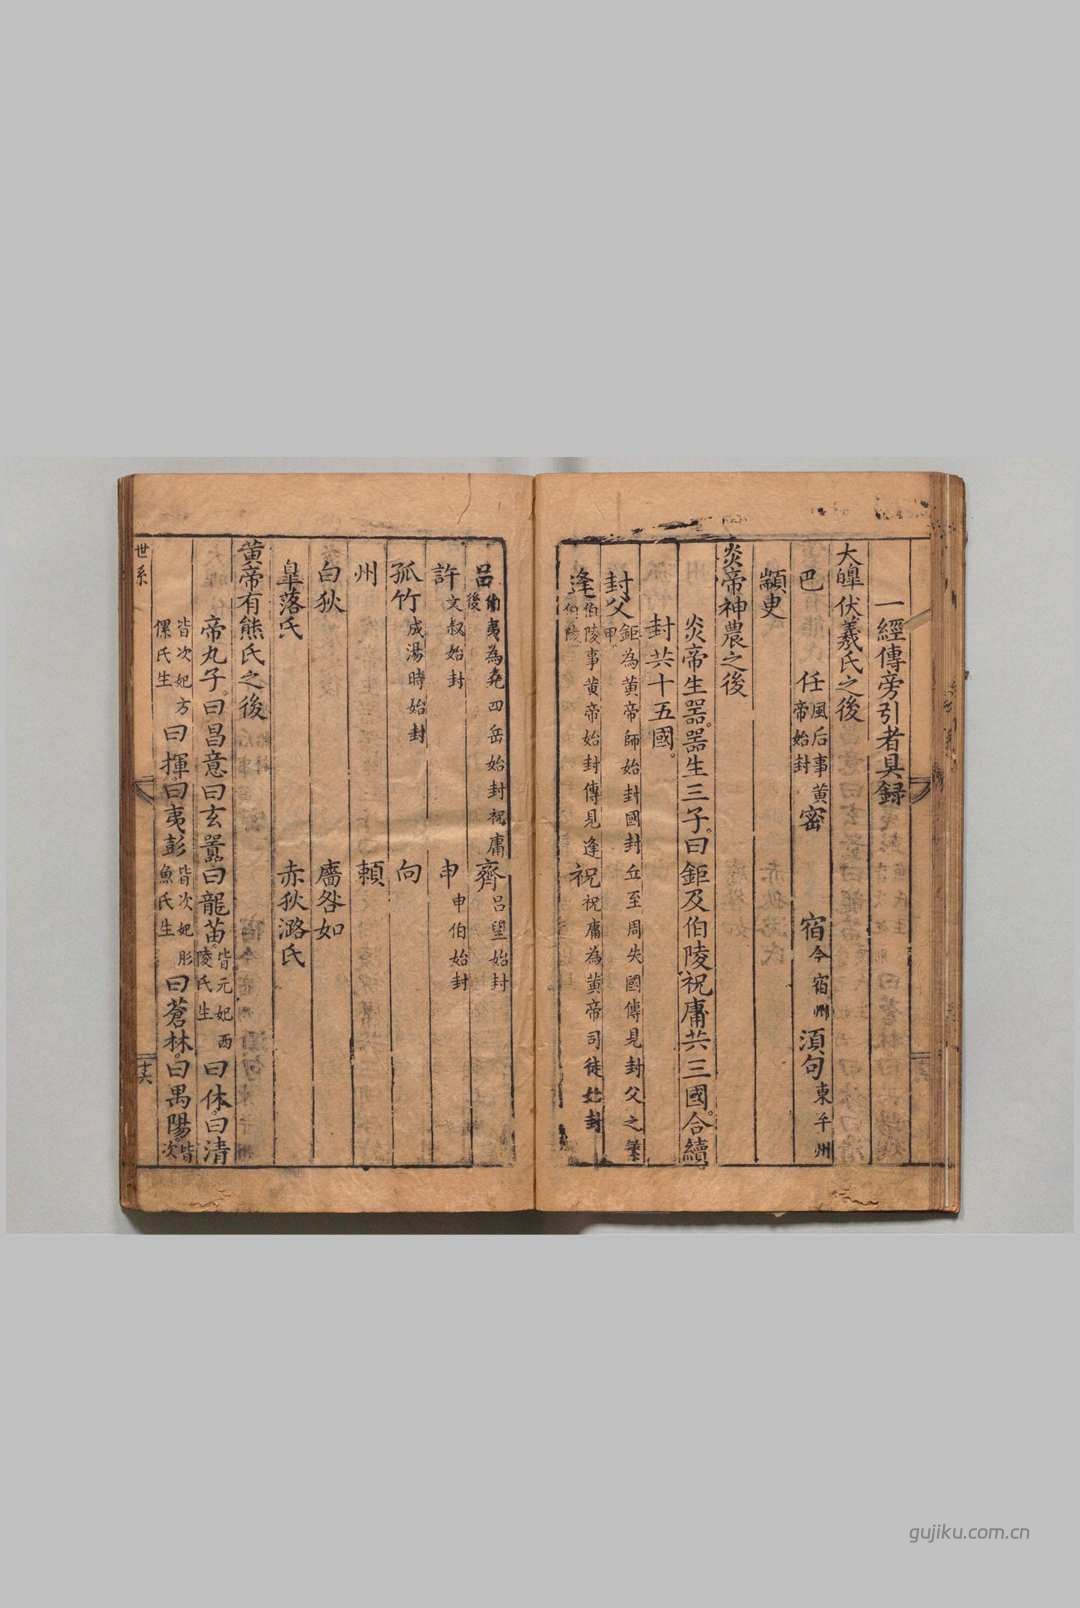 一經傳旁引者具録
大皥伏羲氏之後
巴 任風后事黄帝始封 密 宿今宿州 湏句東平州
顓臾
炎帝神農之後
炎帝生噐噐生三子曰鉅及伯陵祝庸共三國合續
封共十五國
封父鉅為黄帝師始封國封丘至周失國傳見封父之甲
逄伯陵事黄帝始封傳見逄伯陵 祝祝庸為黄帝司徒始封
吕伯夷為堯四岳始封祝庸後 齊吕望始封
許文叔始封 申申伯始封
孤竹成湯時始封 向
州 賴
白狄 廧咎如
臯落氏 赤狄潞氏
黄帝有熊氏之後
帝九子曰昌意曰玄囂曰龍苗皆元妃西陵氏生曰休曰清
皆次妃方傫氏生曰揮曰夷彭皆次妃彤魚氏生曰蒼林曰禺陽皆次
世系
十六
gujiku.com.cn